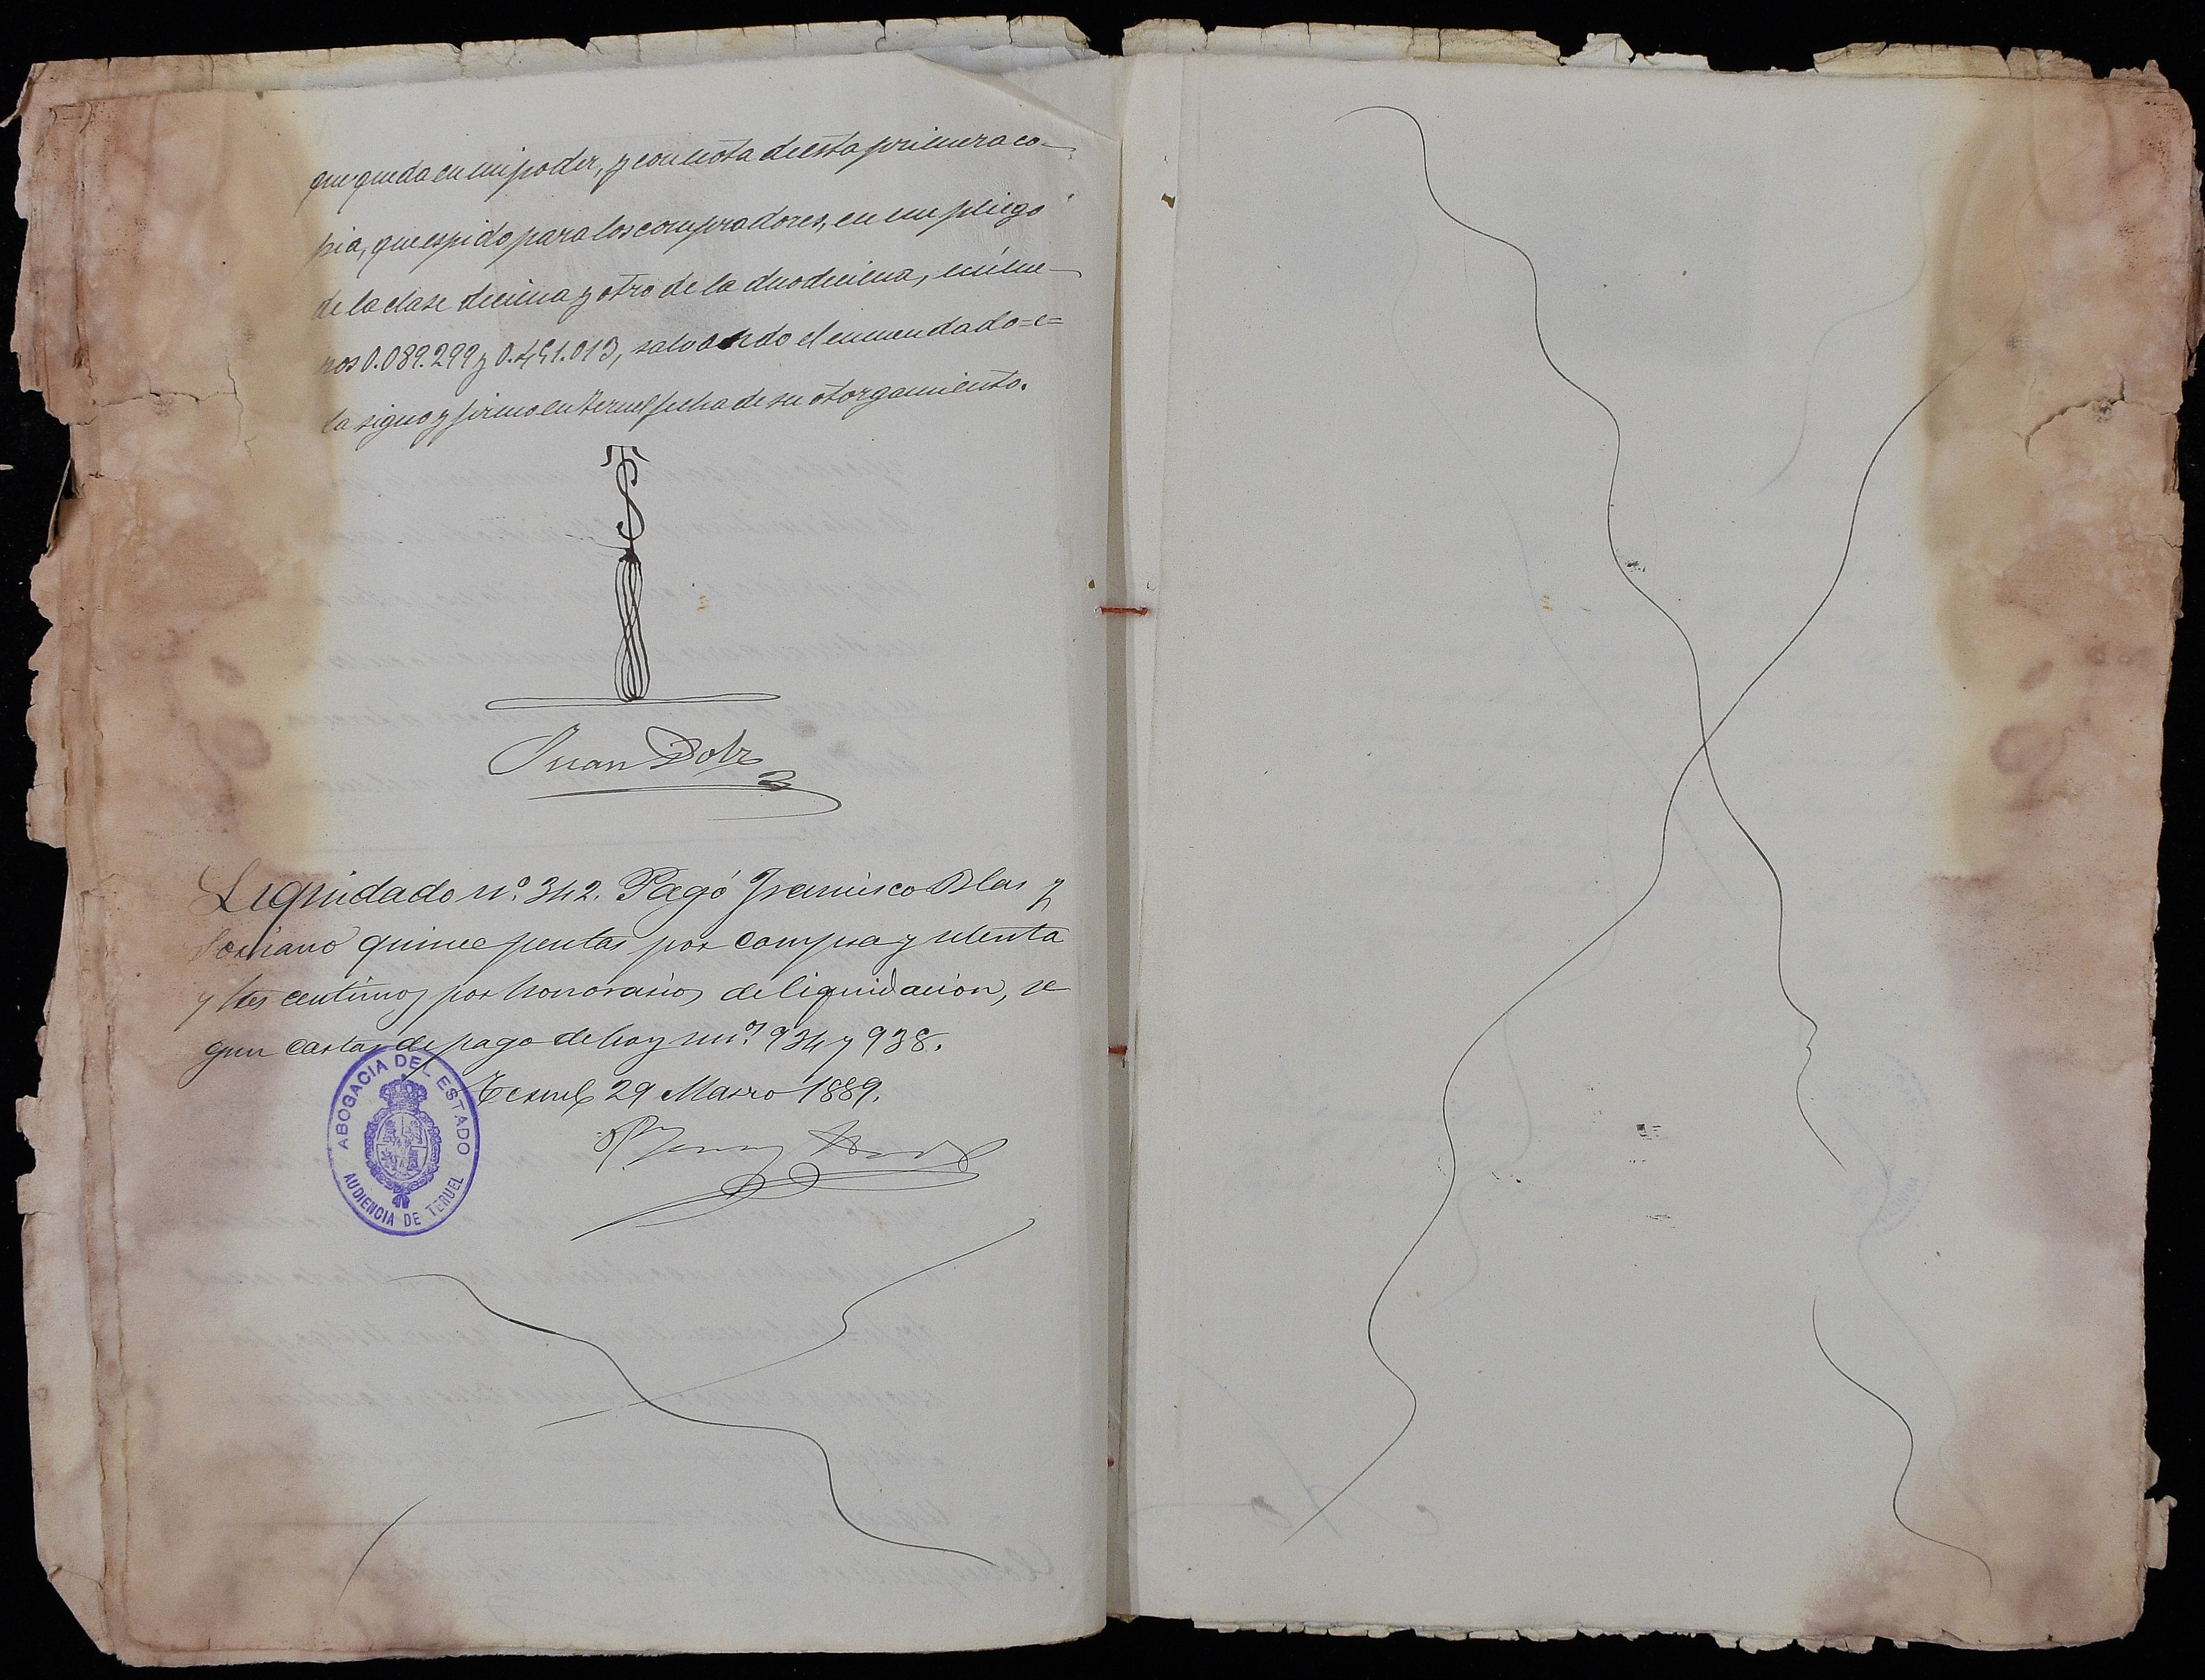 que queda en mi poder, y con nota de esta primera co-
pia, que espido para los compradores, en un pliego
de la clase decima y otro de la duodecima, núme-
ros 0.089.299 y 0.491.013, salvando el enmendado=e=
la signo y firmo en Teruel fecha de su otorgamiento.
Juan Dolz
Liquidado n.º 342. Pagó Francisco Blas y
Soriano quince pesetas por compra y setenta
y tres centimos por honorarios de liquidacion, se
gun cartas de pago de hoy nu.os 934 y 938.
Teruel 29 Marzo 1889.
ABOGACIA DEL ESTADO
AUDIENCIA DE TERUEL